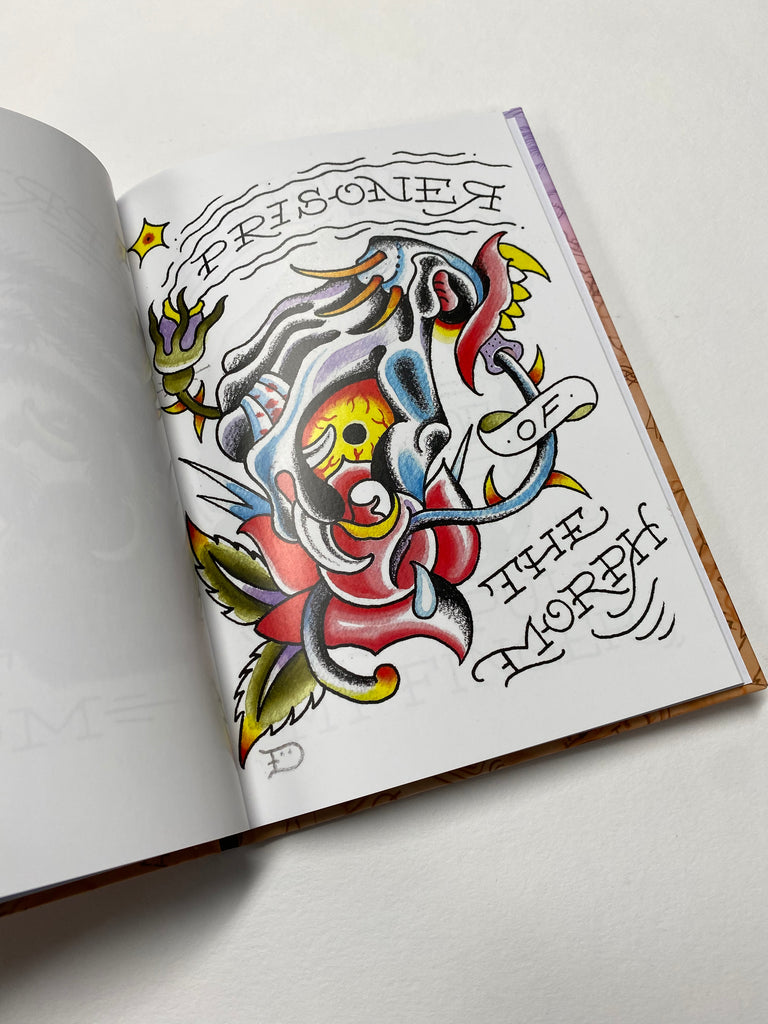 PRISONER
OF
THE
MORPH